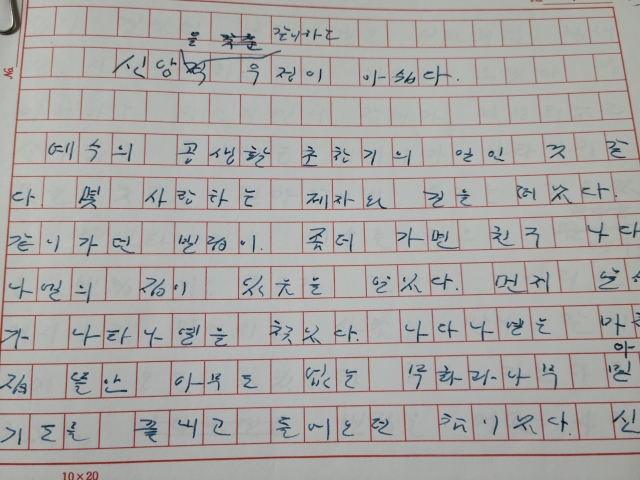 을 간직하고
신앙 우정이 아쉽다.
예수의 공생활 초창기의 일인 것 같
다. 몇 사람하는 제자와 길을 떠났다.
같이 가던 빌립이. 좀더 가면 친구 나다
나엘의 집이 있음을 알았다. 먼저
가 나타나엘을 찾았다. 나다나엘은 마침
집 뜰안 아무도 없는 무화과나무 아
기도를 끝내고 들어오던 참이었다. 신
10×20